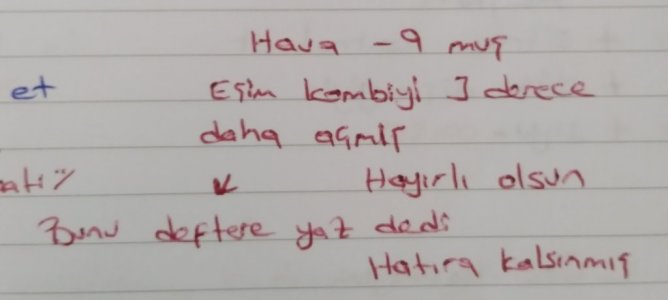 Hava -9 muş
et Eşim kombiyi 1 derece
daha açmış
Hayırlı olsun
Bunu deftere yaz dedi
Hatıra kalsınmış